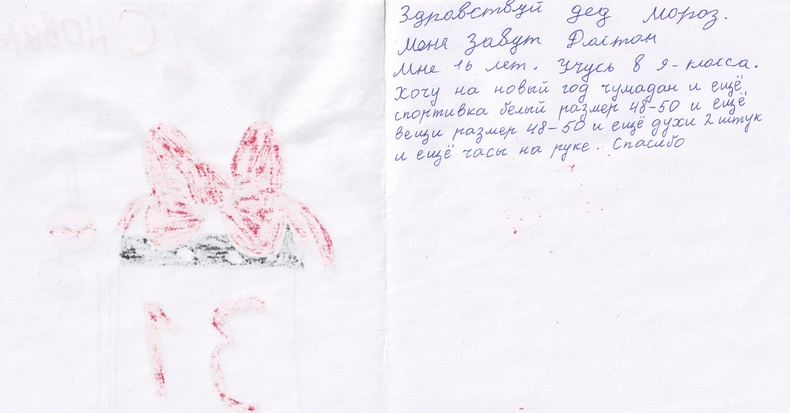 Здравствуй дед Мороз.
Меня Завут Долтон
Мне 16 лет. Учусь в 9-класса.
Хочу на новый год чумадан и ещё
спортивка белый размер 48-50 и ещё
вещи размер 48-50 и ещё духи 2 штук
и ещё часы на руке. Спасибо
С НОВЫМ
31